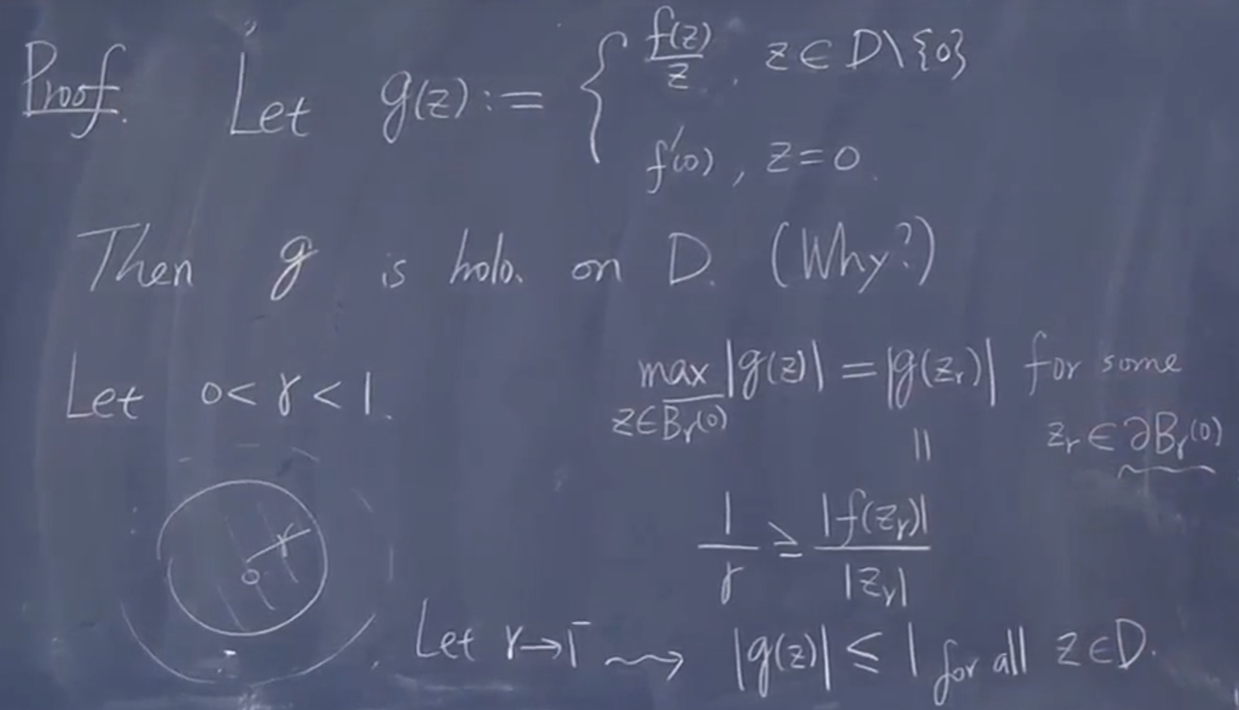 Proof. Let g(z) := { f(z)/z, z ∈ D\{0}
f'(0), z = 0.
Then g is holo. on D. (Why?)
Let 0 < r < 1.
max |g(z)| = |g(z_r)| for some
z ∈ \overline{B_r(0)}
z_r ∈ ∂B_r(0)
||
1/r ≥ |f(z_r)|/|z_r|
r
0
Let r → 1⁻ ⇝ |g(z)| ≤ 1 for all z ∈ D.